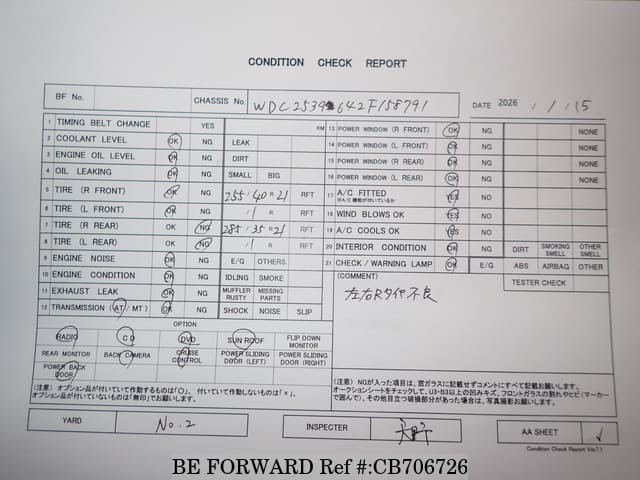 CONDITION CHECK REPORT
BF No. CHASSIS No. WDC2539 642F158791 DATE 2026 / 1 / 15
1 TIMING BELT CHANGE YES KM
2 COOLANT LEVEL OK NG LEAK
3 ENGINE OIL LEVEL OK NG DIRT
4 OIL LEAKING OK NG SMALL BIG
5 TIRE (R FRONT) OK NG 255 / 40 R 21 RFT
6 TIRE (L FRONT) OK NG / R RFT
7 TIRE (R REAR) OK NG 285 / 35 R 21 RFT
8 TIRE (L REAR) OK NG / R RFT
9 ENGINE NOISE OK NG E/G OTHERS
10 ENGINE CONDITION OK NG IDLING SMOKE
11 EXHAUST LEAK OK NG MUFFLER RUSTY MISSING PARTS
12 TRANSMISSION (AT / MT) OK NG SHOCK NOISE SLIP
13 POWER WINDOW (R FRONT) OK NG NONE
14 POWER WINDOW (L FRONT) OK NG NONE
15 POWER WINDOW (R REAR) OK NG NONE
16 POWER WINDOW (L REAR) OK NG NONE
17 A/C FITTED YES NO
※A/C 機能が付いているか
18 WIND BLOWS OK YES NO
19 A/C COOLS OK YES NO
20 INTERIOR CONDITION OK NG DIRT SMOKING SMELL OTHER SMELL
21 CHECK / WARNING LAMP OK E/G ABS AIRBAG OTHER
(COMMENT) TESTER CHECK
左右Rタイヤ不良
OPTION
RADIO CD DVD SUN ROOF FLIP DOWN MONITOR
REAR MONITOR BACK CAMERA CRUISE CONTROL POWER SLIDING DOOR (LEFT) POWER SLIDING DOOR (RIGHT)
POWER BACK DOOR
(注意) オプション品が付いていて作動するものは「○」、付いていて作動しないものは「×」、
オプション品が付いていないものは「無印」でお願いします。
(注意) NGが入った項目は、窓ガラスに記載せずコメントにすべて記載お願いします。
オークションシートをチェックして、U3・B3以上の凹みキズ、フロントガラスの割れやヒビ(マーカー
で囲んで)、その他目立つ破損部分があった場合は、写真撮影お願いします。
YARD No.2 INSPECTER AA SHEET ✓
Condition Check Report Ver7.1
BE FORWARD Ref #:CB706726